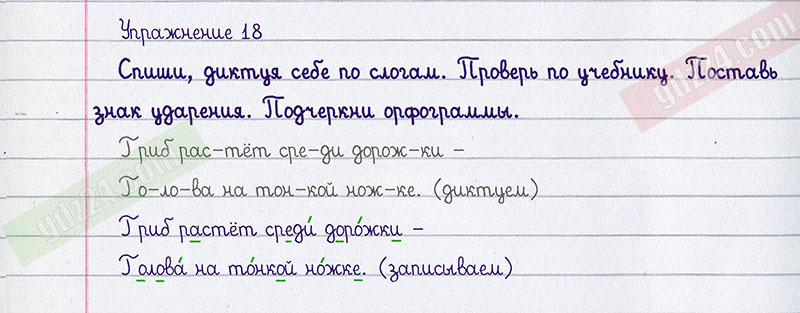 Упражнение 18
Спиши, диктуя себе по слогам. Проверь по учебнику. Поставь
знак ударения. Подчеркни орфограммы.
Гриб рас-тёт сре-ди дорож-ки -
Го-ло-ва на тон-кой нож-ке. (диктуем)
Гриб растёт среди́ доро́жки -
Голова́ на то́нкой но́жке. (записываем)
gdz24.com
gdz24.com